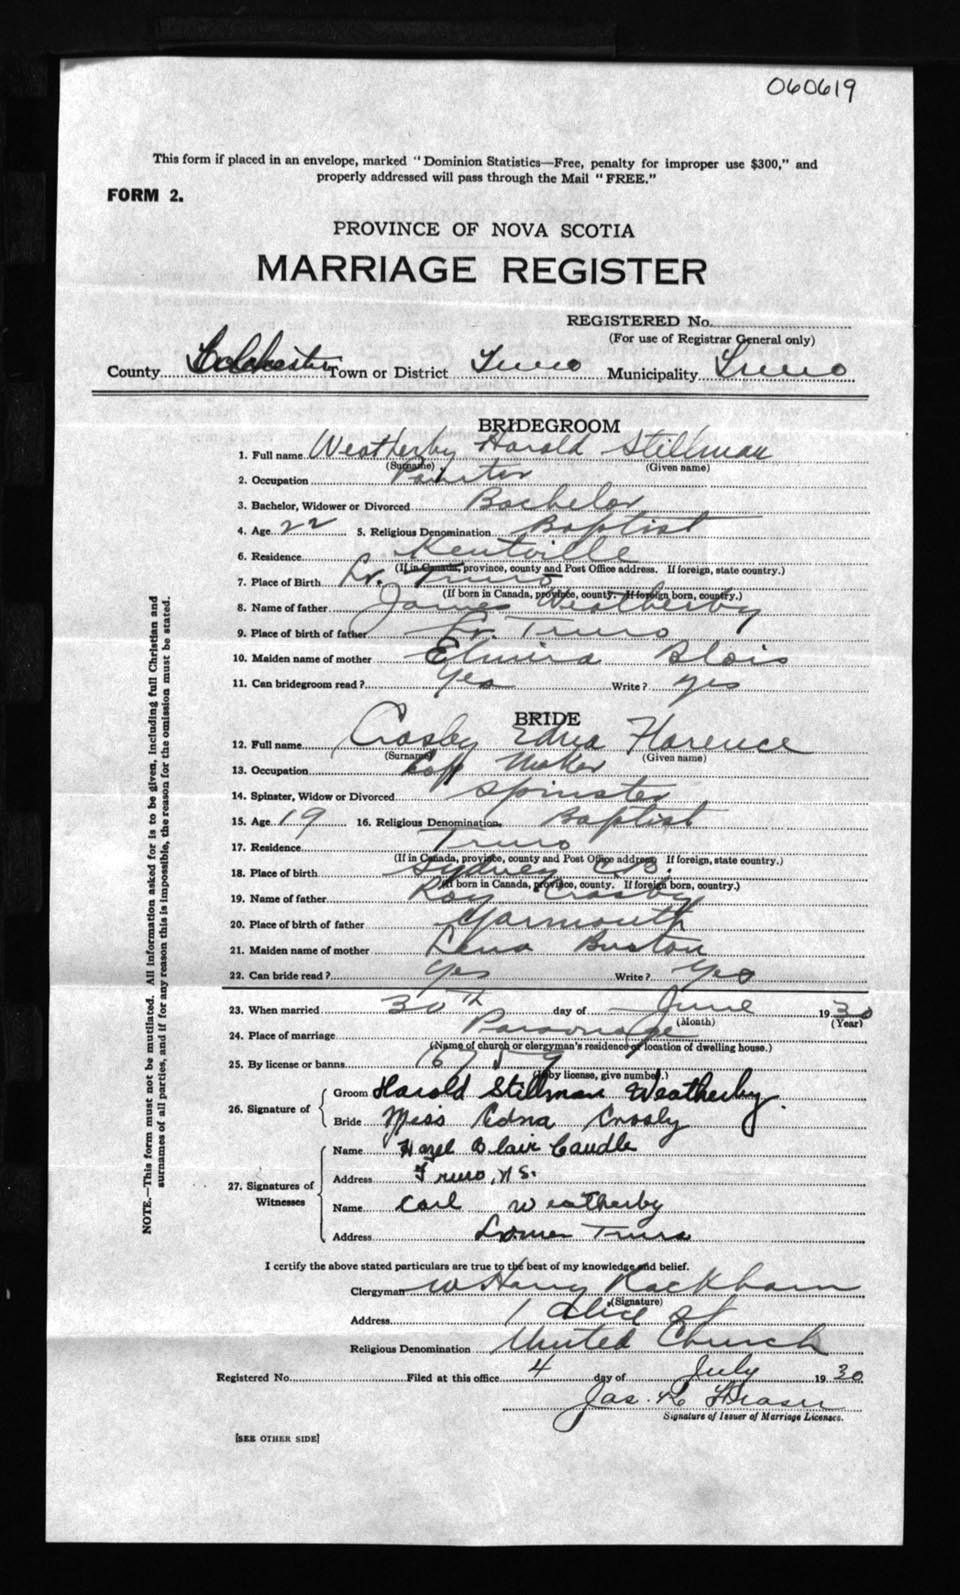 060619
This form if placed in an envelope, marked "Dominion Statistics—Free, penalty for improper use $300," and
properly addressed will pass through the Mail "FREE."
FORM 2.
PROVINCE OF NOVA SCOTIA
MARRIAGE REGISTER
REGISTERED No.
(For use of Registrar General only)
County Colchester Town or District Truro Municipality Truro
BRIDEGROOM
1. Full name Weatherby Harold Stillman
(Surname) (Given name)
2. Occupation Painter
3. Bachelor, Widower or Divorced Bachelor
4. Age 22 5. Religious Denomination Baptist
6. Residence Kentville
(If in Canada, province, county and Post Office address. If foreign, state country.)
7. Place of Birth Lr. Truro
(If born in Canada, province, county. If foreign born, country.)
8. Name of father James Weatherby
9. Place of birth of father Lr. Truro
10. Maiden name of mother Elmira Blois
11. Can bridegroom read? Yes Write? yes
BRIDE
12. Full name Crosby Edna Florence
(Surname) (Given name)
13. Occupation Maker
14. Spinster, Widow or Divorced Spinster
15. Age 19 16. Religious Denomination Baptist
17. Residence Truro
(If in Canada, province, county and Post Office address. If foreign, state country.)
18. Place of birth Sydney C.B.
(If born in Canada, province, county. If foreign born, country.)
19. Name of father Roy Crosby
20. Place of birth of father Yarmouth
21. Maiden name of mother Lena Buston
22. Can bride read? yes Write? yes
23. When married 30th day of June 1930
(Month) (Year)
24. Place of marriage Parsonage
(Name of church or clergyman's residence or location of dwelling house.)
25. By license or banns
(If by license, give number.)
26. Signature of
Groom Harold Stillman Weatherby.
Bride Miss Edna Crosby
27. Signatures of Witnesses
Name Hazel Blair Caudle
Address Truro, N.S.
Name Carl Weatherby
Address Lower Truro
I certify the above stated particulars are true to the best of my knowledge and belief.
Clergyman W Harry Rackham
(Signature)
Address 1 Alice St
Religious Denomination United Church
Registered No. Filed at this office 4 day of July 1930
Jas. R. Fraser
Signature of Issuer of Marriage Licenses.
[SEE OTHER SIDE]
NOTE.—This form must not be mutilated. All information asked for is to be given, including full Christian and
surnames of all parties, and if for any reason this is impossible, the reason for the omission must be stated.